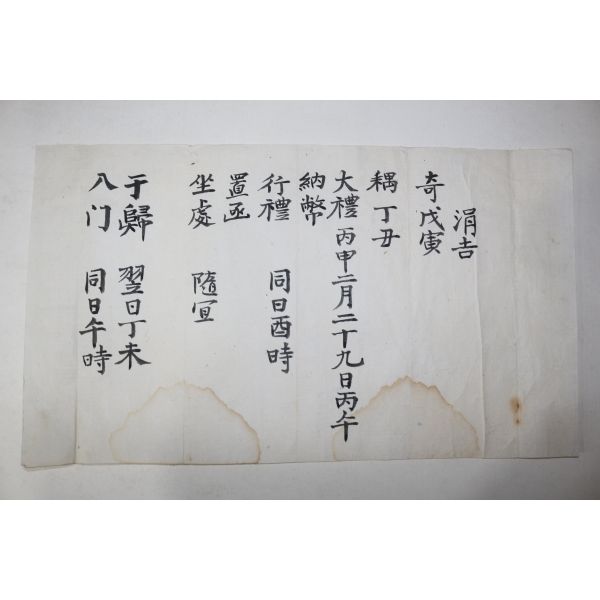 涓吉
奇戊寅
耦丁丑
大禮 丙申二月二十九日丙午
納幣
行禮 同日酉時
置函
坐處 隨宜
于歸 翌日丁未
入门 同日午時